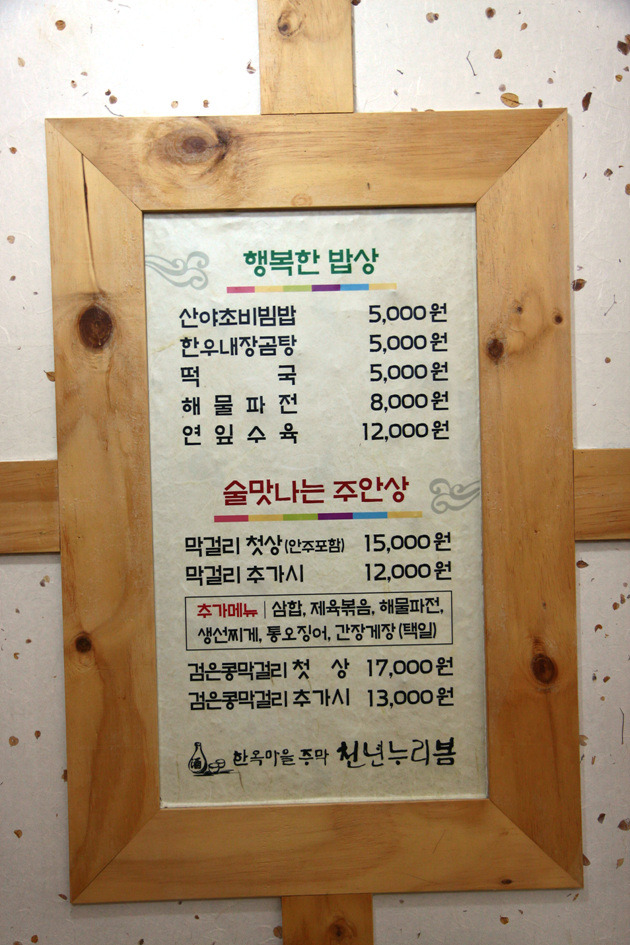 행복한 밥상
산야초비빔밥 5,000원
한우내장곰탕 5,000원
떡 국 5,000원
해 물 파 전 8,000원
연 잎 수 육 12,000원
술맛나는 주안상
막걸리 첫상 (안주포함) 15,000원
막걸리 추가시 12,000원
추가메뉴 | 삼합, 제육볶음, 해물파전,
생선찌게, 통오징어, 간장게장 (택일)
검은콩막걸리 첫 상 17,000원
검은콩막걸리 추가시 13,000원
酒 한옥마을 주막 천년누리봄